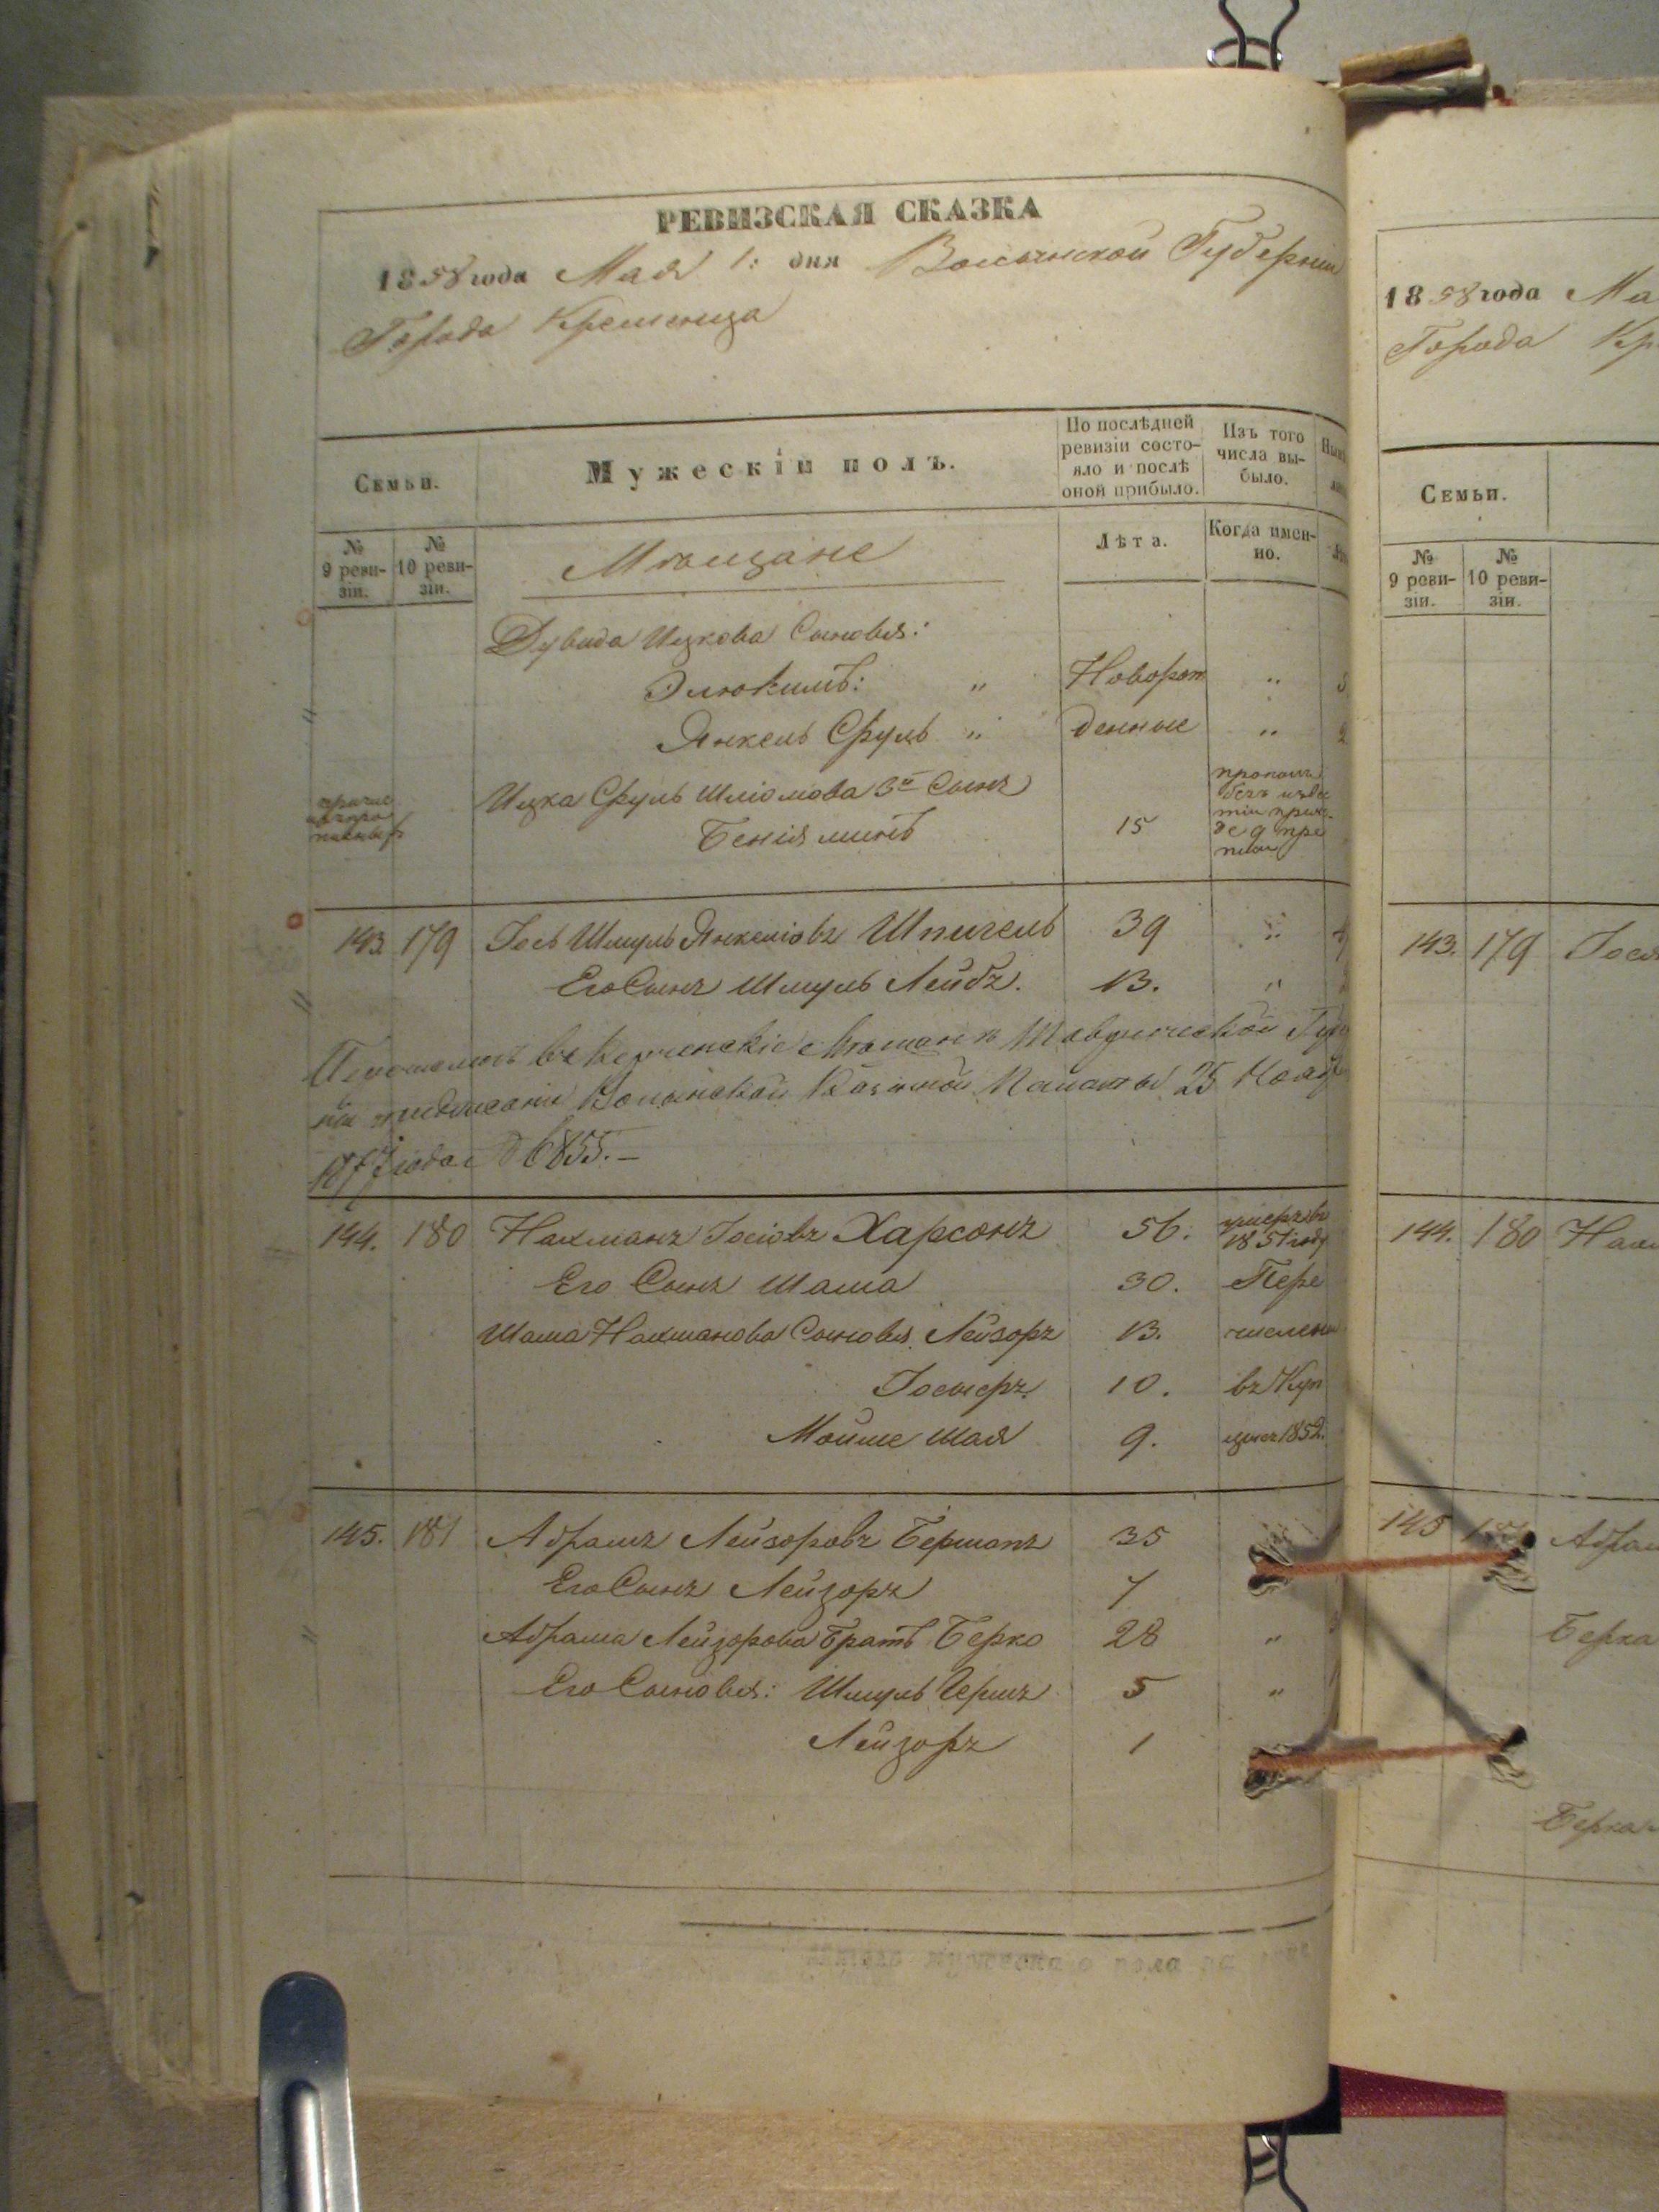 РЕВИЗСКАЯ СКАЗКА
1858 года Мая 1: дня Волынской Губерніи
Города Кременца
Семьи.
Мужескій полъ.
По послѣдней ревизіи состо-
яло и послѣ
оной прибыло.
Изъ того
числа вы-
было.
№ 9 реви-
зіи.
№ 10 реви-
зіи.
Мѣщане
Лѣта.
Когда имен-
но.
Дувида Ицкова Сыновья:
Элюкимъ: " Новорож "
Янкель Сруль " денные "
Ицка Сруль Шліомова 3й Сынъ
Беніяминъ 15
143 179 Іось Шмуль Янкеліовъ Шпигель 39 "
Его Сынъ Шмуль Лейбъ. 13. "
въ Керченскіе Мѣщане Таврической
Волынской Казенной Палаты 25
года 6855.—
144. 180 Нахманъ Іосіовъ Харсонъ 56. умеръ въ
1851 году
Его Сынъ Шаша 30. Пере
Шаша Нахманова Сыновья Лейзоръ 13. числены
Іосиеръ. 10. въ Куп
Мойше Шая 9. 1852.
145. 181 Абрамъ Лейзоровъ Берманъ 35
Его Сынъ Лейзоръ 7
Абрама Лейзорова Братъ Берко 28 "
Его Сыновья: Шмуль Гершъ 5 "
Лейзоръ 1
1858 года Ма
Города Кр
Семьи.
№ 9 реви-
зіи.
№ 10 реви-
зіи.
143. 179
144. 180
145
Берка
Берка